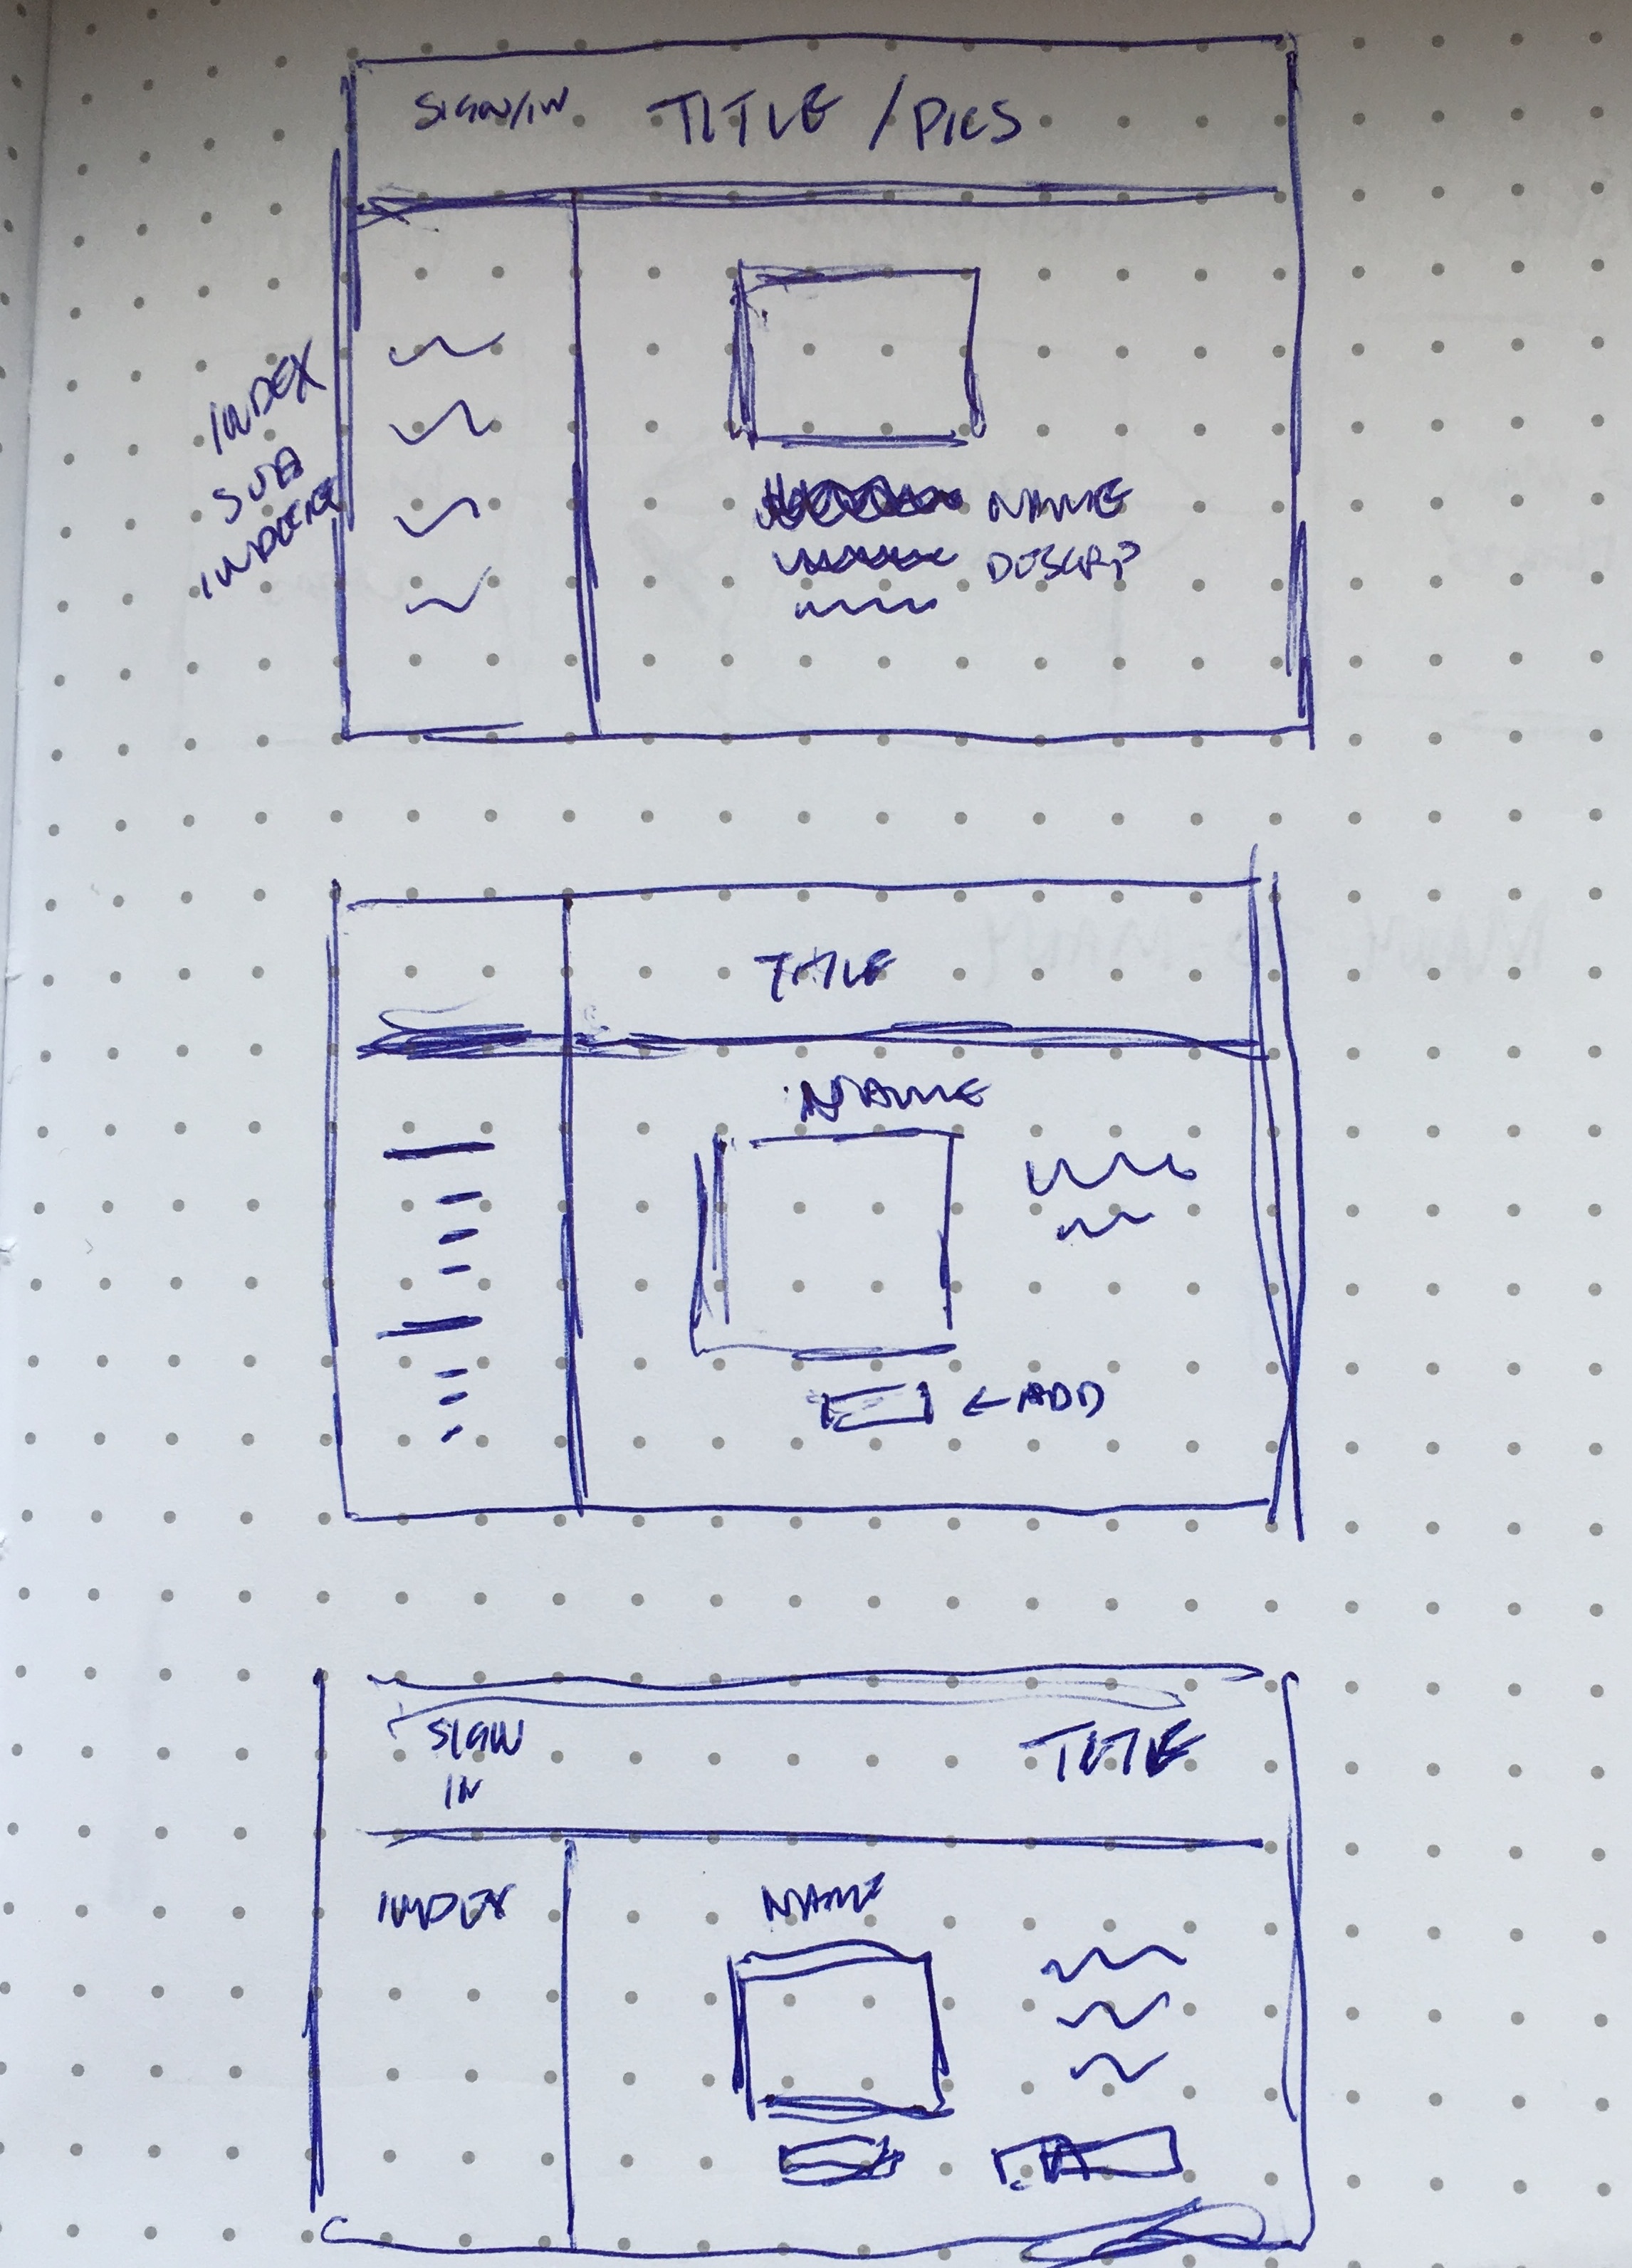 SIGN/IN TITLE / PICS
INDEX
SUB
NAME
DESCRP
TITLE
NAME
← ADD
SIGN
IN
TITLE
INDEX
NAME